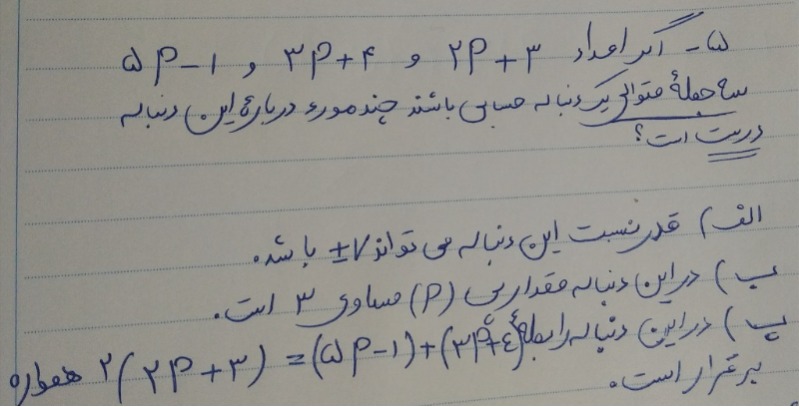 ۵- اگر اعداد ۲P+۳ و ۳P+۴ و ۵P-۱
سه جملهٔ متوالی یک دنباله حسابی باشند چند مورد دربارهٔ این دنباله
درست است؟
الف) قدر نسبت این دنباله می تواند ±۷ باشد.
ب) در این دنباله مقدار پی (P) مساوی ۳ است.
پ) در این دنباله رابطهٔ ۲(۲P+۳) = (۵P-۱)+(۳P+٤) همواره
برقرار است.